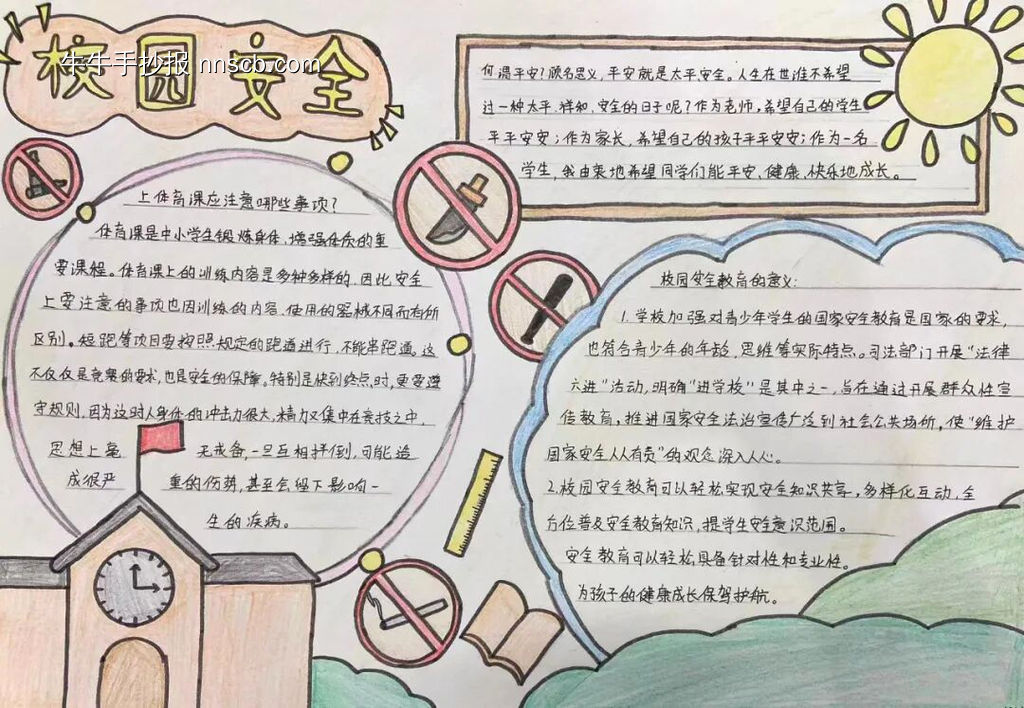 校园安全
牛牛手抄报 nnscb.com
何谓平安?顾名思义,平安就是太平安全。人生在世谁不希望
过一种太平、祥和、安全的日子呢?作为老师,希望自己的学生
平平安安;作为家长,希望自己的孩子平平安安;作为一名
学生,我由衷地希望同学们能平安、健康、快乐地成长。
上体育课应注意哪些事项?
体育课是中小学生锻炼身体、增强体质的重
要课程。体育课上的训练内容是多种多样的,因此安全
上要注意的事项也因训练的内容、使用的器械不同而有所
区别。短跑等项目要按照规定的跑道进行,不能串跑道。这
不仅仅是竞赛的要求,也是安全的保障。特别是快到终点时,更要遵
守规则,因为这时人身体的冲击力很大,精力又集中在竞技之中,
思想上毫无戒备,一旦互相拌倒,可能造
成很严重的伤势,甚至会留下影响一
生的疾病。
校园安全教育的意义:
1.学校加强对青少年学生的国家安全教育是国家的要求,
也符合青少年的年龄、思维等实际特点。司法部门开展“法律
六进”活动,明确“进学校”是其中之一,旨在通过开展群众性宣
传教育,推进国家安全法治宣传广泛到社会公共场所,使“维护
国家安全人人有责”的观念深入人心。
2.校园安全教育可以轻松实现安全知识共享,多样化互动,全
方位普及安全教育知识,提学生安全意识范围。
安全教育可以轻松具备针对性和专业性。
为孩子的健康成长保驾护航。